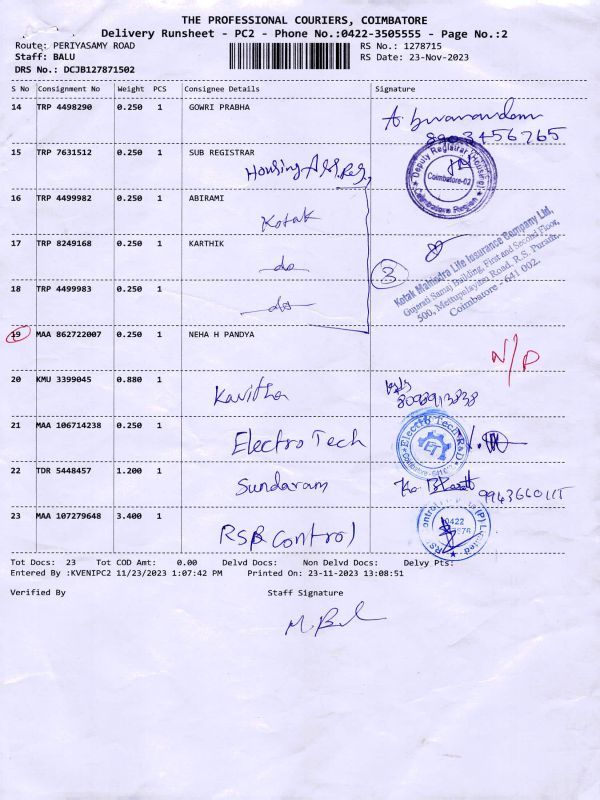 THE PROFESSIONAL COURIERS, COIMBATORE
Delivery Runsheet - PC2 - Phone No.:0422-3505555 - Page No.:2
Route: PERIYASAMY ROAD
RS No.: 1278715
Staff: BALU
RS Date: 23-Nov-2023
DRS No.: DCJB127871502
S No Consignment No Weight PCS Consignee Details Signature
14 TRP 4498290 0.250 1 GOWRI PRABHA
8903456765
15 TRP 7631512 0.250 1 SUB REGISTRAR
Housing
Deputy Registrar (Housing)
Coimbatore-02
Coimbatore Region
16 TRP 4499982 0.250 1 ABIRAMI
Kotak
17 TRP 8249168 0.250 1 KARTHIK
do
3
Kotak Mahindra Life Insurance Company Ltd,
Gujarati Samaj Building, First and Second Floor,
500, Mettupalayam Road, R.S. Puram,
Coimbatore - 641 002.
18 TRP 4499983 0.250 1
do
19 MAA 862722007 0.250 1 NEHA H PANDYA
N/P
20 KMU 3399045 0.880 1
Kavitha
8098913838
21 MAA 106714238 0.250 1
Electro Tech
Electro Tech R&D
22 TDR 5448457 1.200 1
Sundaram
23 MAA 107279648 3.400 1
RSB Control
0422
Tot Docs: 23 Tot COD Amt: 0.00 Delvd Docs: Non Delvd Docs: Delvy Pts:
Entered By :KVENIPC2 11/23/2023 1:07:42 PM Printed On: 23-11-2023 13:08:51
Verified By Staff Signature